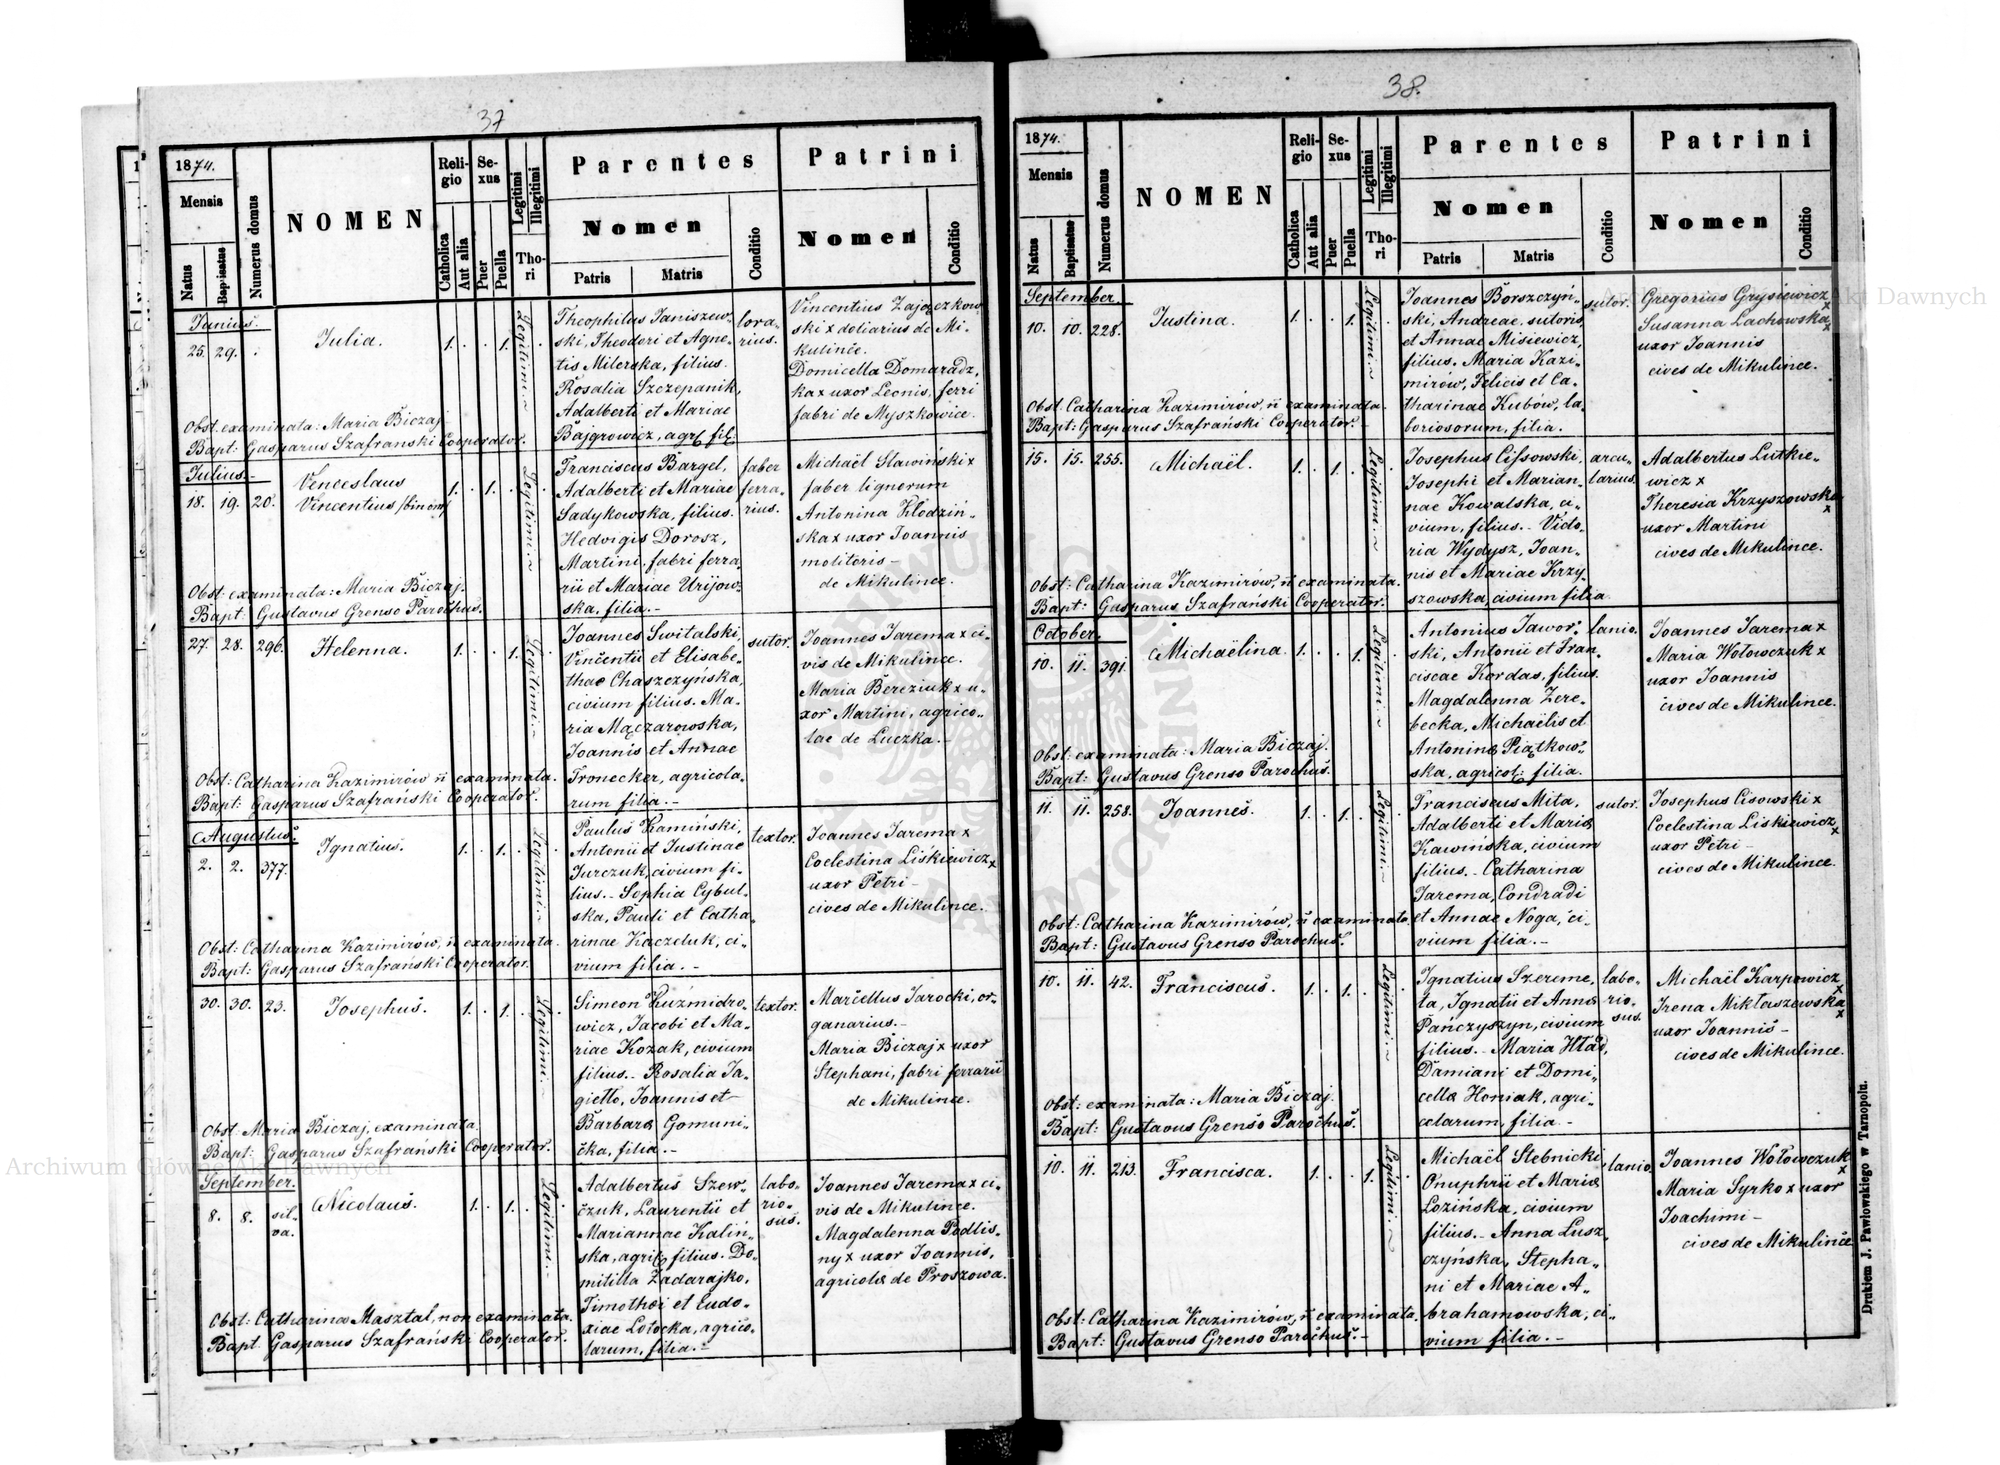 37
1874.
Mensis
Natus
Baptisatus
Numerus domus
NOMEN
Religio
Catholica
Aut alia
Sexus
Puer
Puella
Legitimi
Illegitimi
Thori
Parentes
Nomen
Patris
Matris
Conditio
Patrini
Nomen
Conditio
Junius.
25. 29.
Julia.
1. . . 1.
Legitimi.
Theophilus Janiszew-
ski, Theodori et Agne-
tis Milerska, filius.
Rosalia Szczepanik,
Adalberti et Mariae
Bajgrowicz, agr. fil.
lora-
rius.
Vincentius Zajączkow
ski x doliarius de Mi-
kulince.
Domicella Domaradz,
ka x uxor Leonis, ferri
fabri de Myszkowice.
Obst. examinata: Maria Biczaj.
Bapt: Gasparus Szafranski Cooperator.
Julius.-
18. 19. 20.
Venceslaus
Vincentius /binom/
1. . 1. .
Legitimi.
Franciscus Bargel,
Adalberti et Mariae
Sadykowska, filius.
Hedvigis Dorosz,
Martini, fabri ferra-
rii et Mariae Urijow-
ska, filia.-
faber
ferra-
rius.
Michaël Slawiński x
faber lignorum
Antonina Kłodziń-
ska x uxor Joannis
molitoris-
de Mikulince.
Obst. examinata: Maria Biczaj.
Bapt: Gustavus Grenso Parochus.
27. 28. 296.
Helenna.
1. . . 1.
Legitimi.
Joannes Switalski,
Vincentii et Elisabe-
thae Chaszczyńska,
civium filius. Ma-
ria Mączarowska,
Joannis et Annae
Fronecker, agricola-
rum filia.-
sutor.
Joannes Jarema x ci-
vis de Mikulince.
Maria Bereziuk x u-
xor Martini, agrico-
lae de Luczka.-
Obst: Catharina Kazimirów n̄ examinata.
Bapt: Gasparus Szafrański Cooperator.
Augustus.
2. 2. 377.
Ignatius.
1. . 1. .
Legitimi.
Paulus Kamiński,
Antonii et Justinae
Jurczuk, civium fi-
lius.- Sophia Cybul-
ska, Pauli et Catha-
rinae Kaczeluk, ci-
vium filia.-
textor.
Joannes Jarema x
Coelestina Liśkiewicz x
uxor Petri-
cives de Mikulince.
Obst: Catharina Kazimirów, n̄ examinata.
Bapt: Gasparus Szafrański Cooperator.
30. 30. 23.
Josephus.
1. . 1. .
Legitimi.
Simeon Kuzmidro-
wicz, Jacobi et Ma-
riae Kozak, civium
filius.- Rosalia Ja-
giełło, Joannis et
Barbarae Gomuni-
čka, filia.-
textor.
Marcellus Jarocki, or-
ganarius.-
Maria Biczaj x uxor
Stephani, fabri ferrarii
de Mikulince.
Obst: Maria Biczaj, examinata.
Bapt: Gasparus Szafrański Cooperator.
September.
8. 8. sil-
va.
Nicolaus.
1. . 1. .
Legitimi.
Adalbertus Szew-
čzuk, Laurentii et
Mariannae Kaliń-
ska, agric. filius. Do-
mitilla Zadarajko,
Timothei et Eudo-
xiae Lotocka, agrico-
larum, filia.-
labo-
rio-
sus.
Joannes Jarema x ci-
vis de Mikulince.
Magdalenna Podlis-
ny x uxor Joannis,
agricolae de Proszowa.
Obst: Catharina Masztal, non examinata.
Bapt. Gasparus Szafrański Cooperator.
38.
1874.
Mensis
Natus
Baptisatus
Numerus domus
NOMEN
Religio
Catholica
Aut alia
Sexus
Puer
Puella
Legitimi
Illegitimi
Thori
Parentes
Nomen
Patris
Matris
Conditio
Patrini
Nomen
Conditio
September.
10. 10. 228.
Justina.
1. . . 1.
Legitimi.
Joannes Borszczyń-
ski, Andreae, sutoris,
et Annae Misiewicz,
filius. Maria Kazi-
mirów, Felicis et Ca-
tharinae Kubów, la-
boriosorum, filia.
sutor.
Gregorius Grysiewicz x
Susanna Lachowska x
uxor Joannis
cives de Mikulince.
Obst. Catharina Kazimirów, n̄ examinata.
Bapt: Gasparus Szafrański Cooperator.-
15. 15. 255.
Michaël.
1. . 1. .
Legitimi.
Josephus Cissowski,
Josephi et Marian-
nae Kowalska, ci-
vium, filius.- Victo-
ria Wydysz, Joan-
nis et Mariae Krzy-
szowska, civium filia.
arcu-
larius.
Adalbertus Lutkie-
wicz x
Theresia Krzyszowska x
uxor Martini
cives de Mikulince.
Obst: Catharina Kazimirów, n̄ examinata.
Bapt: Gasparus Szafrański Cooperator.
October.
10. 11. 391.
Michaëlina.
1. . . 1.
Legitimi.
Antonius Jawor-
ski, Antonii et Fran-
ciscae Kordas, filius.
Magdalenna Zere-
becka, Michaëlis et
Antoninae Piątkow-
ska, agricol: filia.
lanio.
Joannes Jarema x
Maria Wołowczuk x
uxor Joannis
cives de Mikulince.
Obst: examinata: Maria Biczaj.
Bapt: Gustavus Grenso Parochus.
11. 11. 258.
Joannes.
1. . 1. .
Legitimi.
Franciscus Mita,
Adalberti et Mariae
Kawińska, civium
filius.- Catharina
Jarema, Condradi
et Annae Noga, ci-
vium filia.-
sutor.
Josephus Cisowski x
Coelestina Liskiewicz x
uxor Petri-
cives de Mikulince.
Obst: Catharina Kazimirów, n̄ examinata.
Bapt: Gustavus Grenso Parochus.
10. 11. 42.
Franciscus.
1. . 1. .
Legitimi.
Ignatius Szereme-
ta, Ignatii et Annae
Pańczyszyn, civium
filius.- Maria Hład,
Damiani et Domi-
cellae Honiak, agri-
colarum, filia.-
labo-
rio-
sus.
Michaël Karpowicz x
Irena Mikłaszewska x
uxor Joannis-
cives de Mikulince.
Obst: examinata: Maria Biczaj.
Bapt: Gustavus Grenso Parochus.
10. 11. 213.
Francisca.
1. . . 1.
Legitimi.
Michaël Stebnicki,
Onuphrii et Mariae
Lozińska, civium
filius.- Anna Lusz-
czyńska, Stepha-
ni et Mariae A-
brahamowska, ci-
vium filia.-
lanio.
Joannes Wołowczuk x
Maria Syrko x uxor
Joachimi-
cives de Mikulince.
Obst: Catharina Kazimirów, n̄ examinata.
Bapt: Gustavus Grenso Parochus.-
Drukiem J. Pawłowskiego w Tarnopolu.
Archiwum Główne Akt Dawnych
Archiwum Główne Akt Dawnych
ARCHIWUM GŁÓWNE AKT DAWNYCH